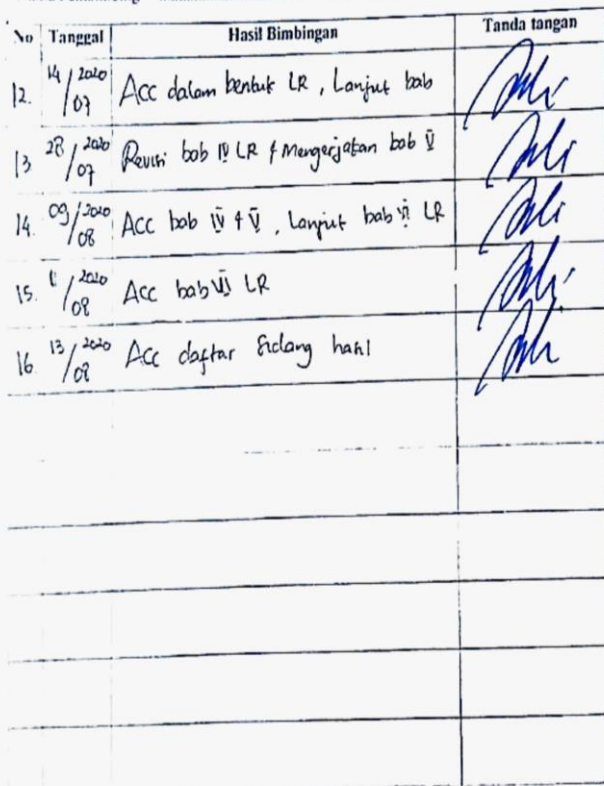 No Tanggal Hasil Bimbingan Tanda tangan
12. 14/07 2020 Acc dalam bentuk LR, Lanjut bab
13 28/07 2020 Revisi bab IV LR & Mengerjakan bab V
14. 09/08 2020 Acc bab IV & V, Lanjut bab VI LR
15. /08 2020 Acc bab VI LR
16. 13/08 2020 Acc daftar Sidang hasil